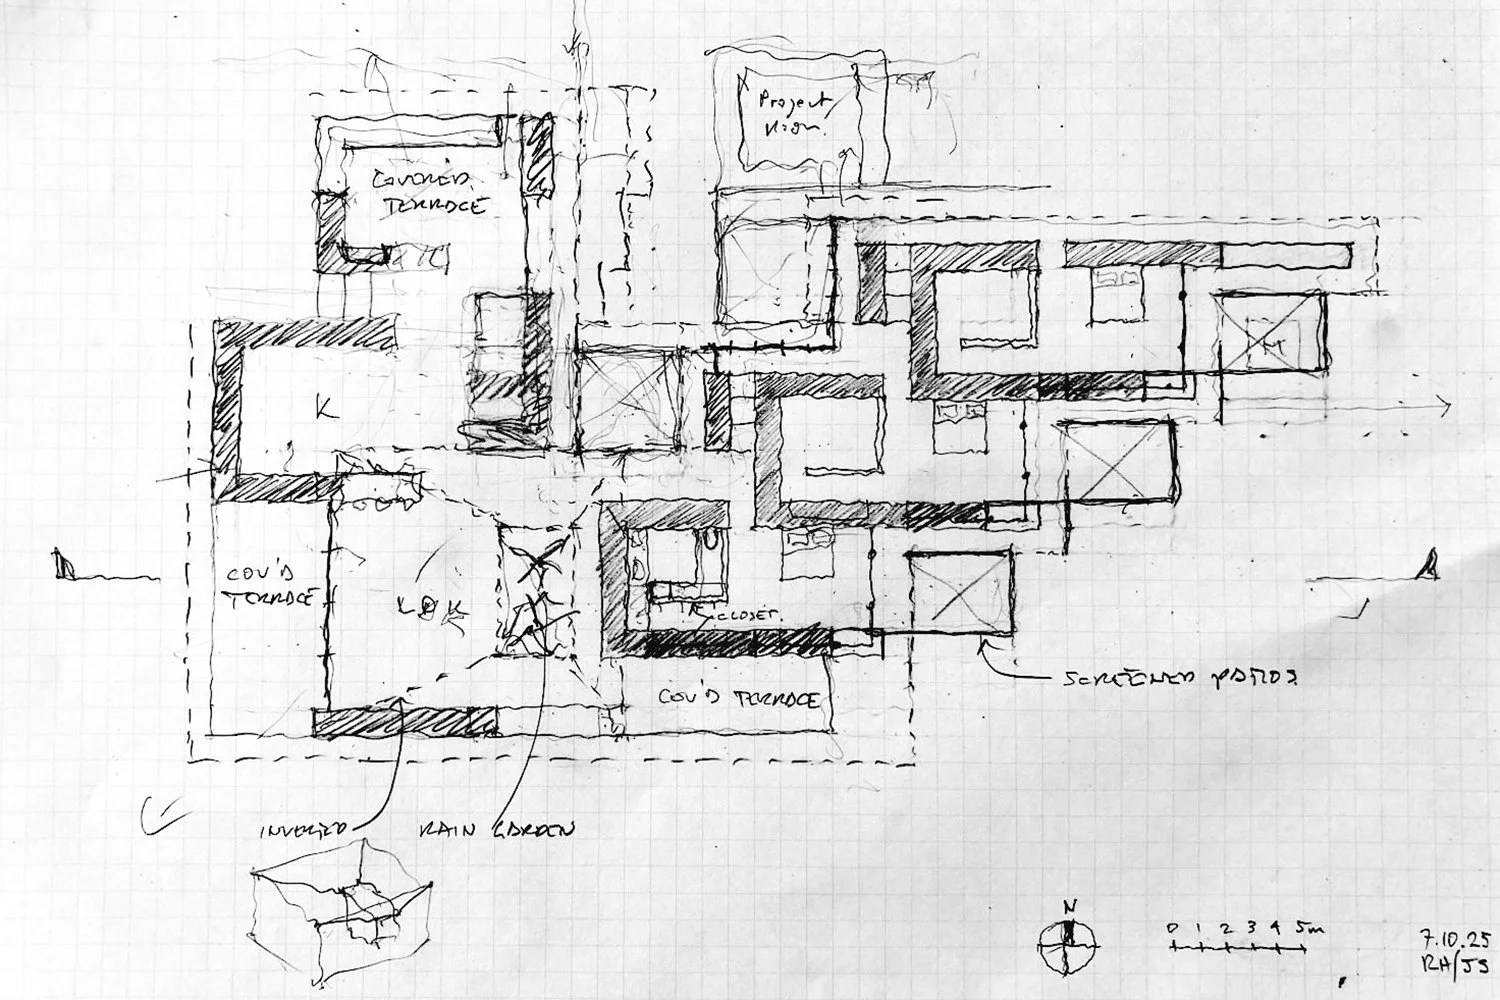 Project
Room.
COVERED
TERRACE
K
COV'D
TERRACE
CLOSET.
COV'D TERRACE
SCREENED PATIOS
INVERTED
RAIN GARDEN
N
0 1 2 3 4 5m
7.10.25
RH/JS